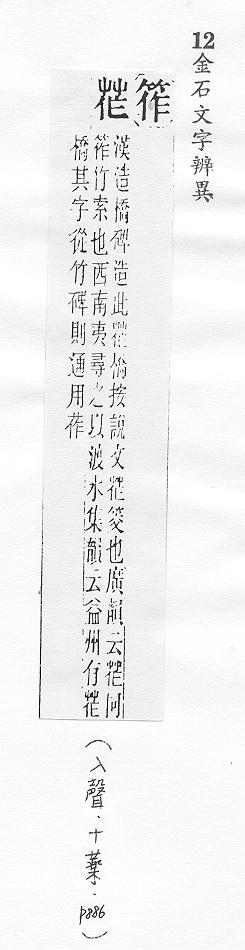 12金石文字辨異
筰
莋
漢造橋碑造此莋橋按說文莋筊也廣韻云莋同
筰竹索也西南夷尋之以渡水集韻云益州有莋
橋其字從竹碑則通用莋
（入聲．十藥．p886）